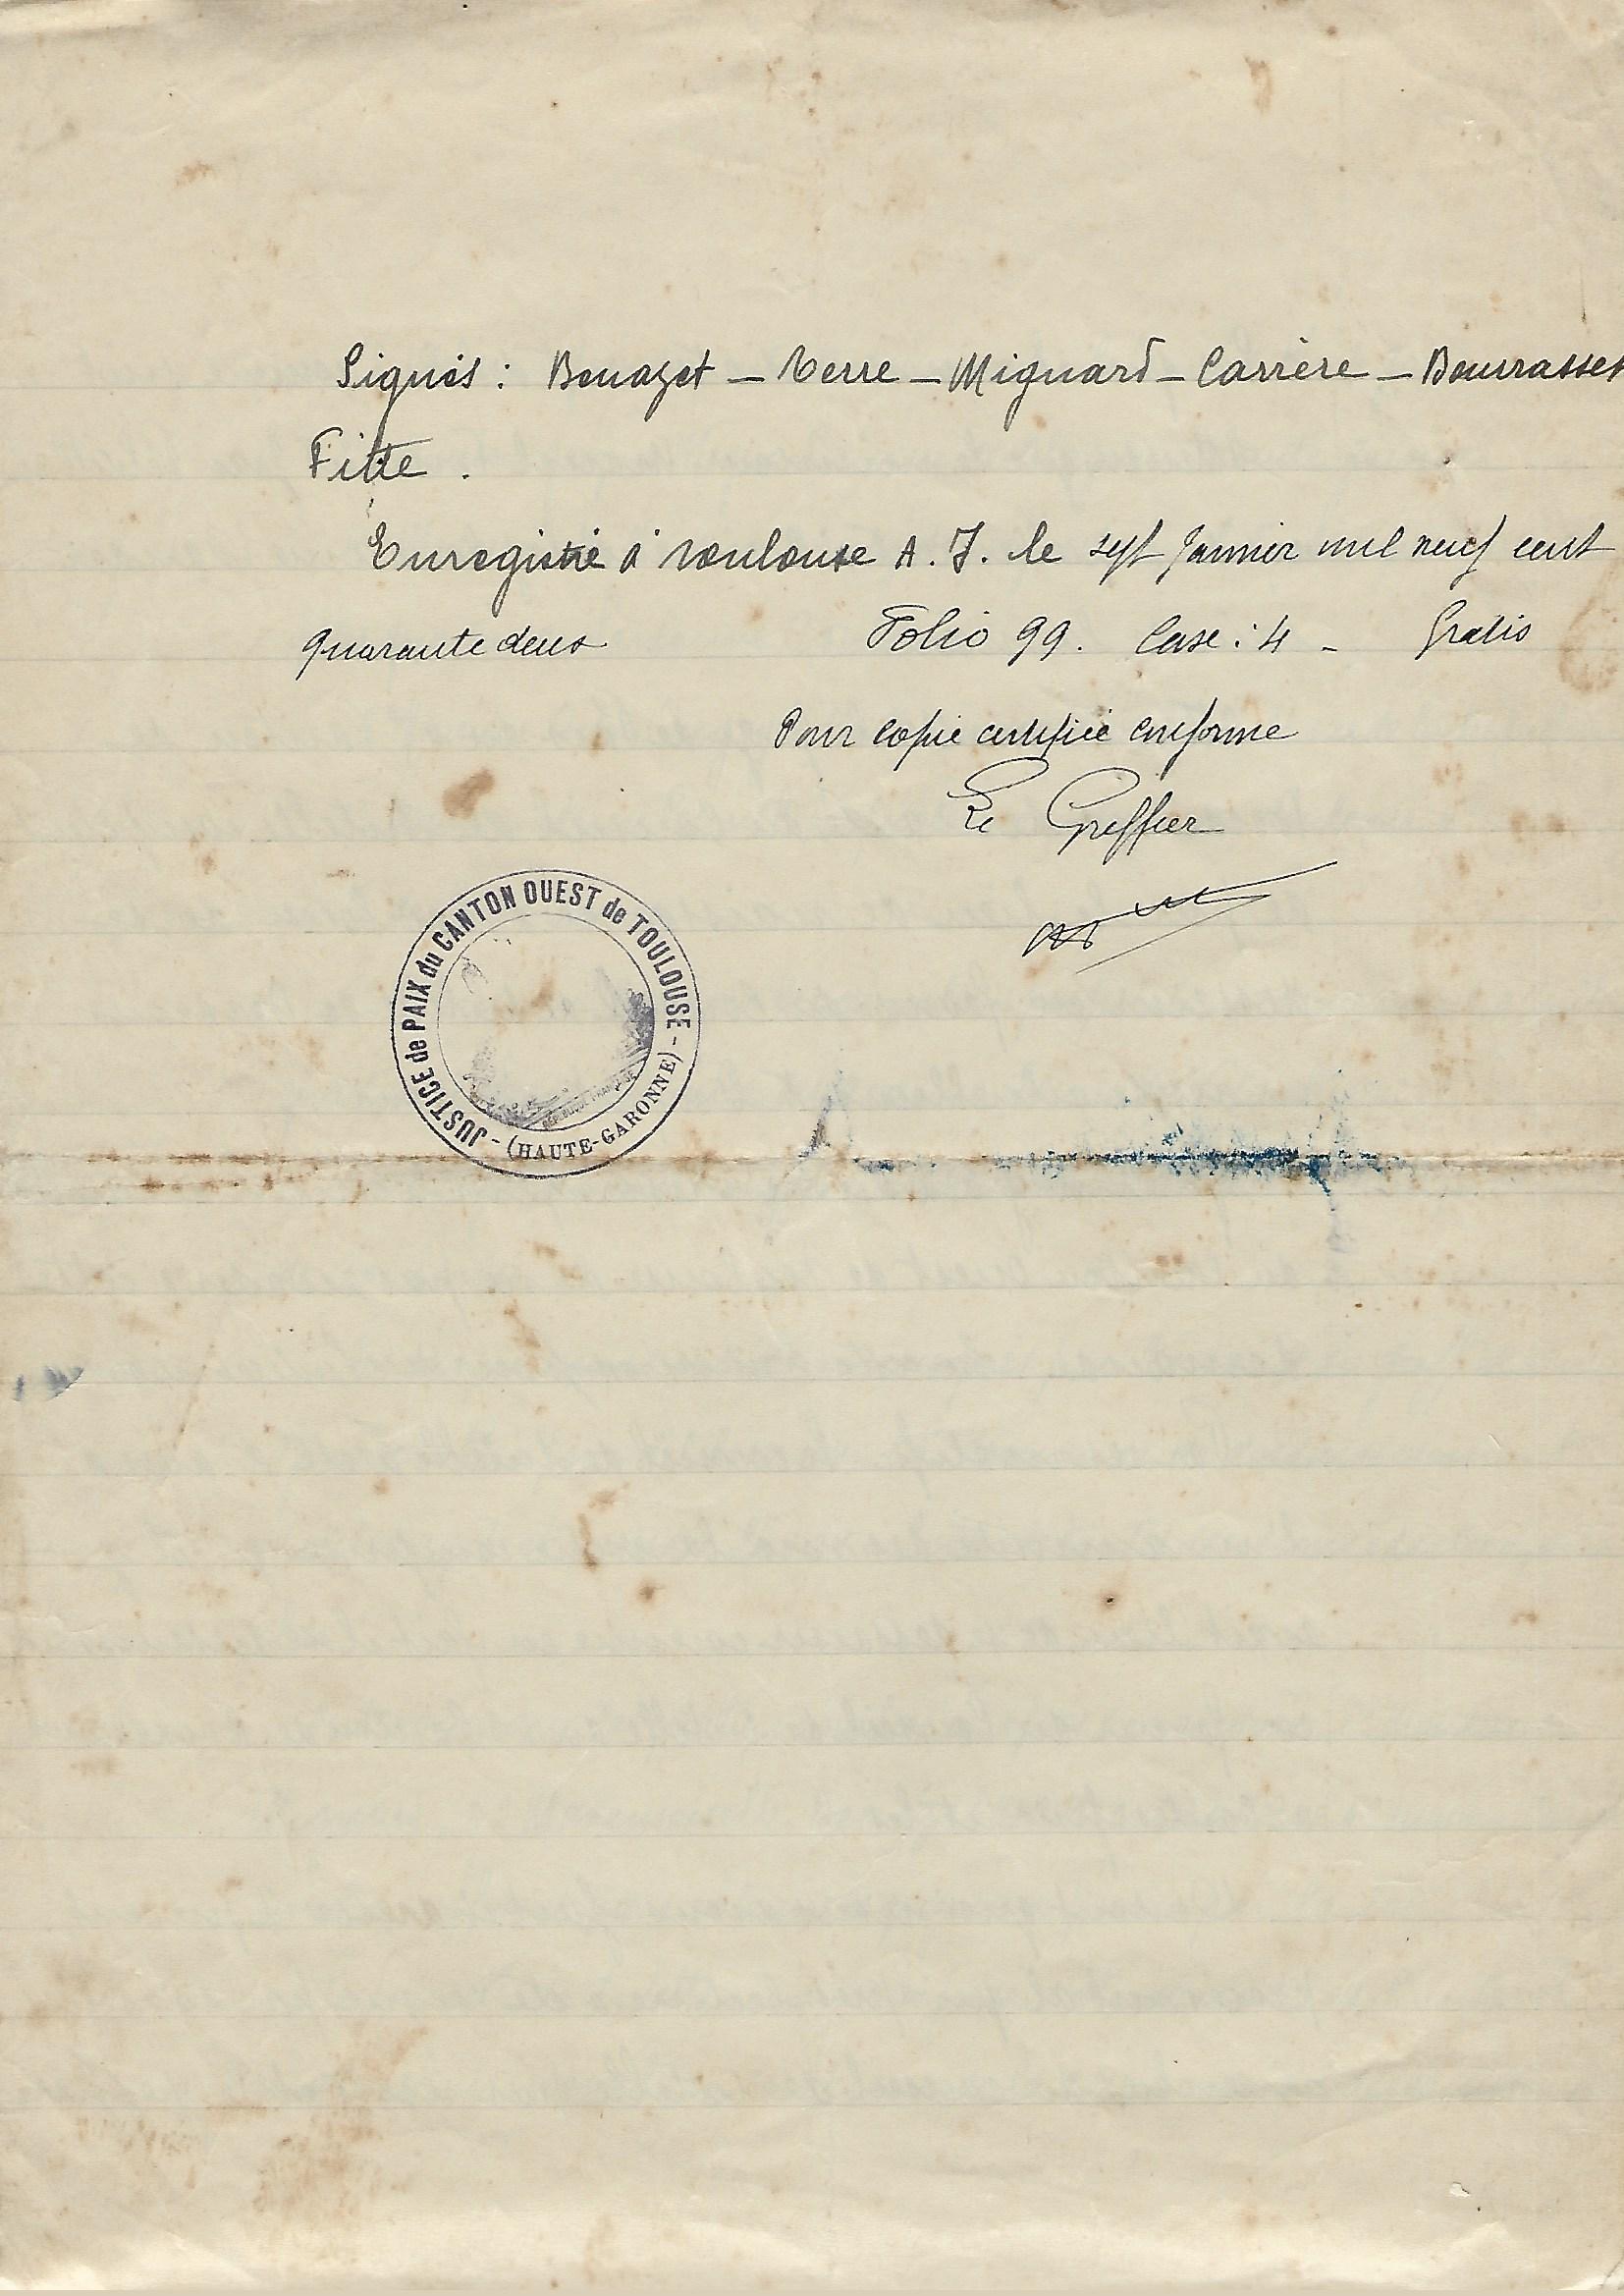 Signés : Benazet - Verre - Mignard - Carrère - Bourrasset
Fitte .
Enregistré à Toulouse A. J. le sept Janvier mil neuf cent
quarante deux Folio 99. Case : 4 - Gratis
Pour copie certifiée conforme
Le Greffier
JUSTICE de PAIX du CANTON OUEST de TOULOUSE -
(HAUTE-GARONNE) -